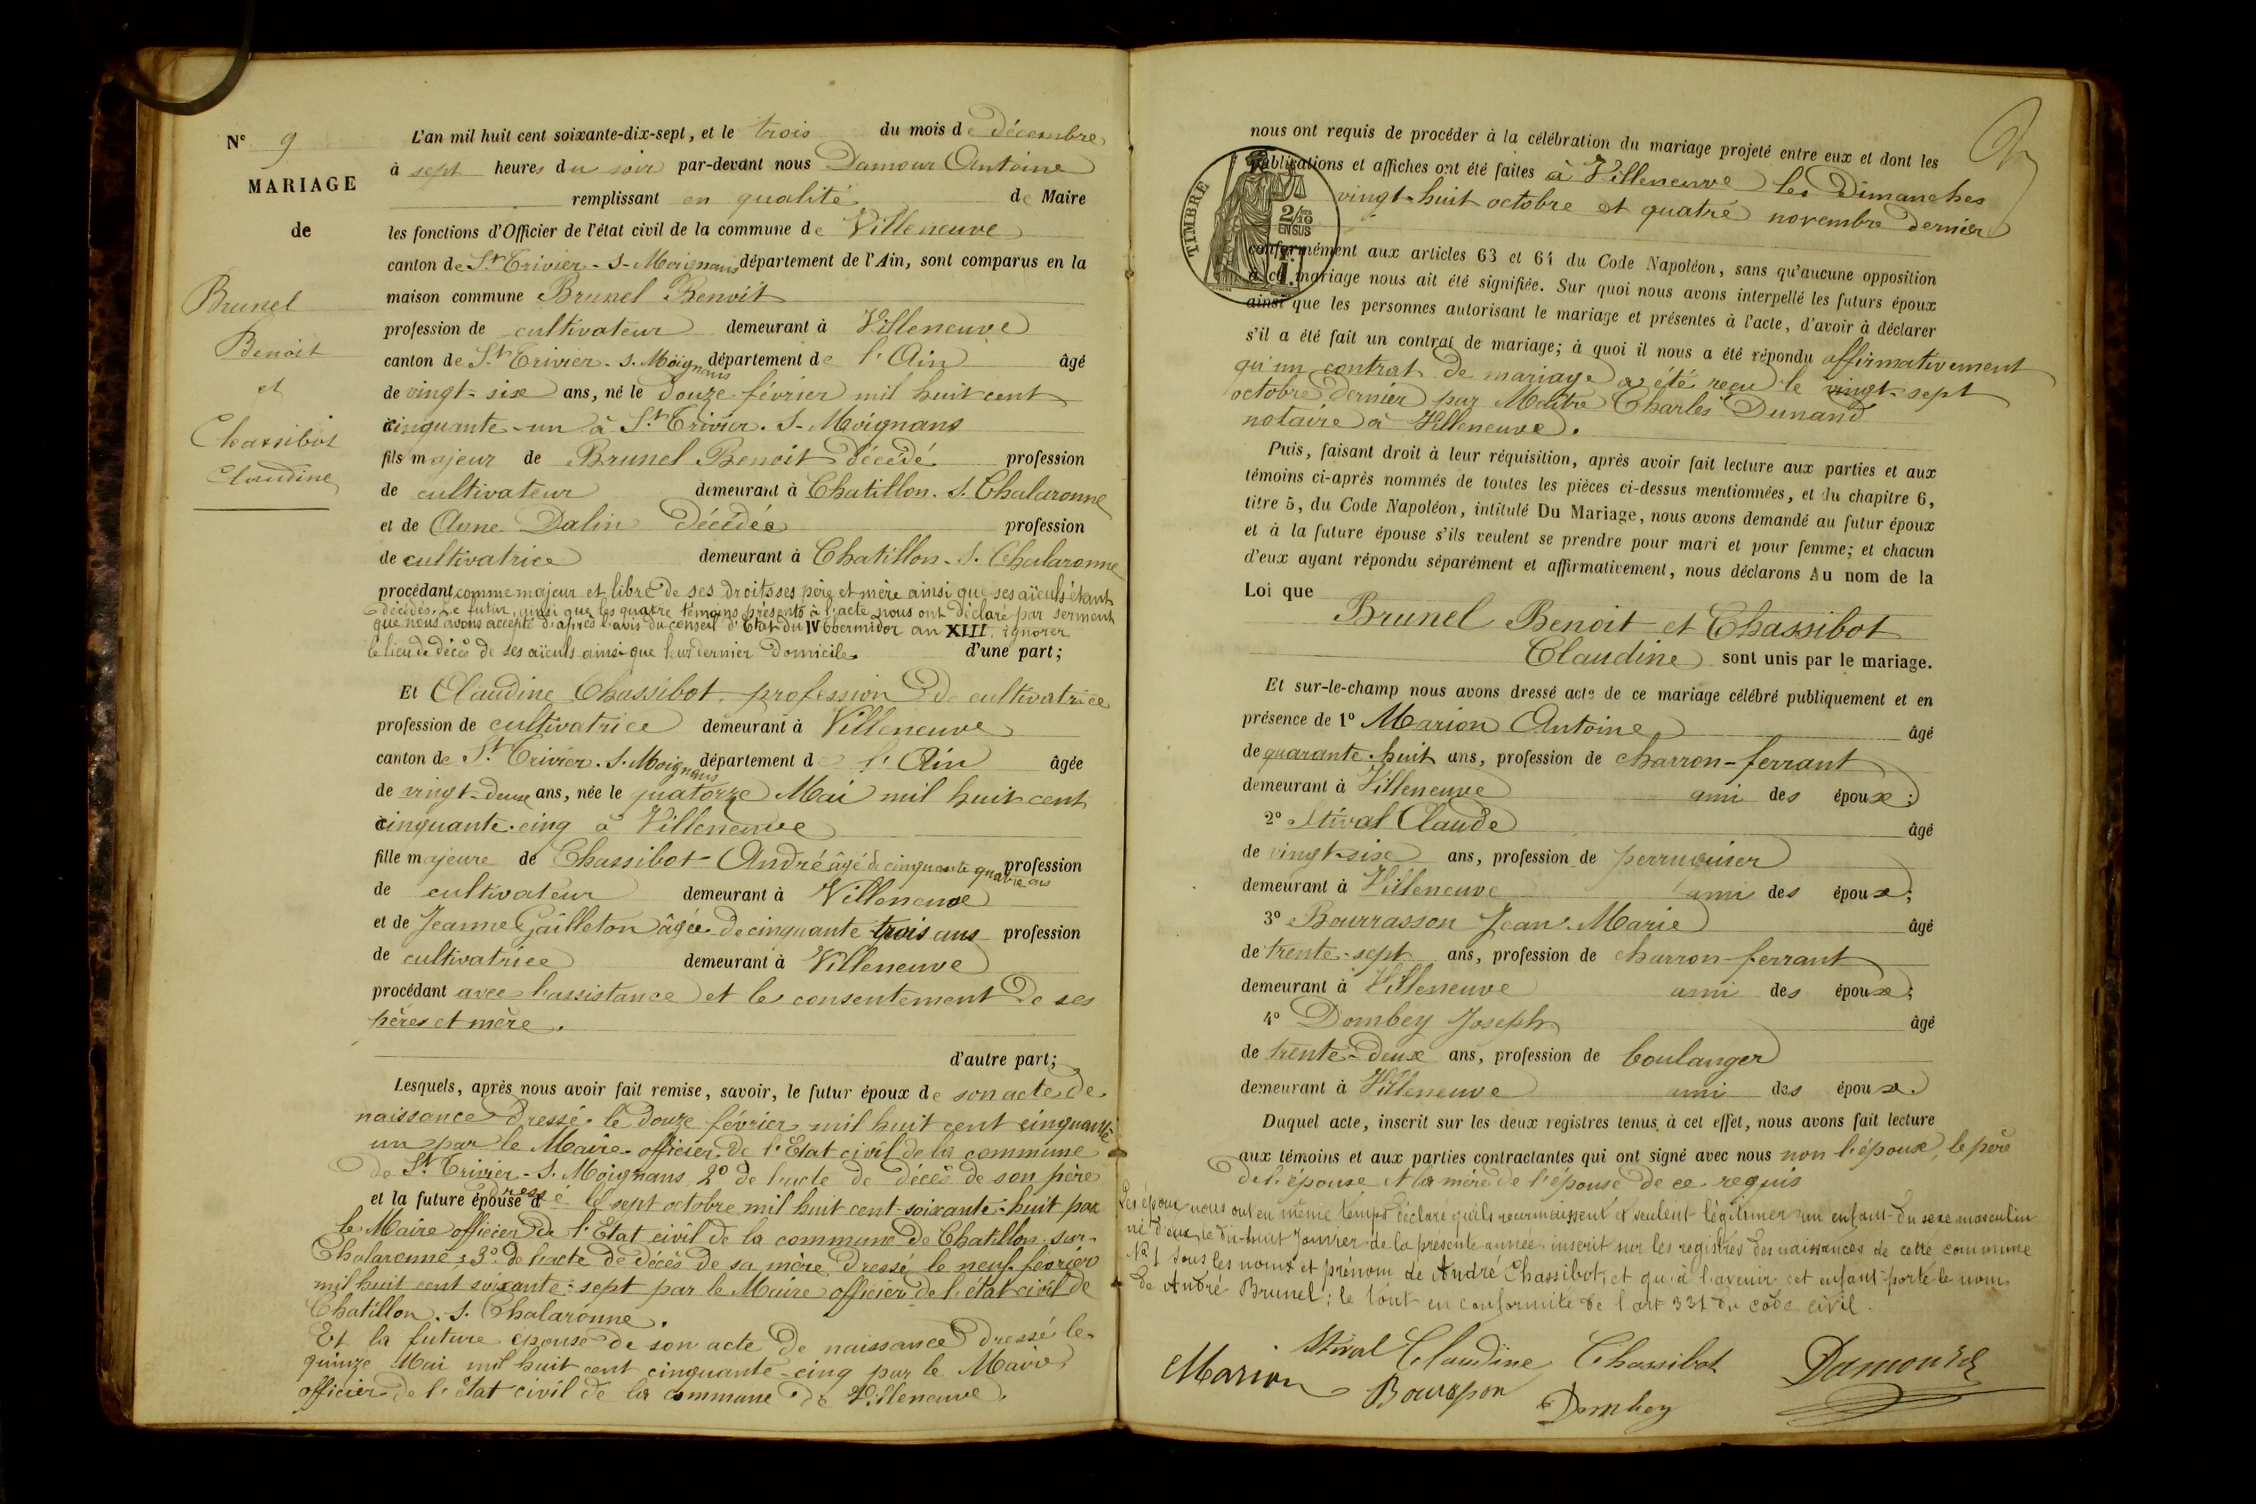 N° 9
MARIAGE
de
Brunel
Benoit
et
Chassibot
Claudine
L'an mil huit cent soixante-dix-sept, et le trois du mois de décembre
à sept heures du soir par-devant nous Damour Antoine
remplissant en qualité de Maire
les fonctions d'Officier de l'état civil de la commune de Villeneuve
canton de St Trivier-S-Moignans département de l'Ain, sont comparus en la
maison commune Brunel Benoit
profession de cultivateur demeurant à Villeneuve
canton de St Trivier-S. Moignans département de l'Ain âgé
de vingt-six ans, né le douze février mil huit cent
cinquante-un à St Trivier. S-Moignans
fils majeur de Brunel Benoit décédé profession
de cultivateur demeurant à Chatillon. S. Chalaronne
et de Anne Dalin décédée profession
de cultivatrice demeurant à Chatillon-S. Chalaronne
procédant comme majeur et libre de ses droits ses père et mère ainsi que ses aïeuls étant
décédés. Le futur, ainsi que les quatre témoins présents à l'acte nous ont déclaré par serment
que nous avons accepté d'après l'avis du conseil d'Etat du IV thermidor an XIII, ignorer
le lieu de décès de ses aïeuls ainsi que leur dernier domicile. d'une part;
Et Claudine Chassibot. profession de cultivatrice
profession de cultivatrice demeurant à Villeneuve
canton de St Trivier. S. Moignans département de l'Ain âgée
de vingt-deux ans, née le quatorze Mai mil huit cent
cinquante-cinq à Villeneuve
fille majeure de Chassibot André âgé de cinquante quatre ans profession
de cultivateur demeurant à Villeneuve
et de Jeanne Gailleton âgée de cinquante trois ans profession
de cultivatrice demeurant à Villeneuve
procédant avec l'assistance et le consentement de ses
pères et mère.
d'autre part;
Lesquels, après nous avoir fait remise, savoir, le futur époux de son acte de
naissance dressé le douze février mil huit cent cinquante
un par le Maire officier de l'Etat civil de la commune
de St Trivier-S. Moignans 2° de l'acte de décès de son père
et la future épouse d dressé le sept octobre mil huit cent soixante-huit par
le Maire officier de l'Etat civil de la commune de Chatillon-sur-
Chalaronne; 3° de l'acte de décès de sa mère dressé le neuf février
mil huit cent soixante-sept par le Maire officier de l'état civil de
Chatillon. S. Chalaronne.
Et la future épouse de son acte de naissance dressé le
quinze Mai mil huit cent cinquante-cinq par le Maire
officier de l'état civil de la commune de Villeneuve.
nous ont requis de procéder à la célébration du mariage projeté entre eux et dont les
publications et affiches ont été faites à Villeneuve les Dimanches
vingt-huit octobre et quatre novembre dernier
TIMBRE
2/10
EN SUS
conformément aux articles 63 et 64 du Code Napoléon, sans qu'aucune opposition
à ce mariage nous ait été signifiée. Sur quoi nous avons interpellé les futurs époux
ainsi que les personnes autorisant le mariage et présentes à l'acte, d'avoir à déclarer
s'il a été fait un contrat de mariage; à quoi il nous a été répondu affirmativement
qu'un contrat de mariage a été reçu le vingt-sept
octobre dernier par Maître Charles Dunand
notaire à Villeneuve.
Puis, faisant droit à leur réquisition, après avoir fait lecture aux parties et aux
témoins ci-après nommés de toutes les pièces ci-dessus mentionnées, et du chapitre 6,
titre 5, du Code Napoléon, intitulé Du Mariage, nous avons demandé au futur époux
et à la future épouse s'ils veulent se prendre pour mari et pour femme; et chacun
d'eux ayant répondu séparément et affirmativement, nous déclarons Au nom de la
Loi que
Brunel Benoit et Chassibot
Claudine sont unis par le mariage.
Et sur-le-champ nous avons dressé acte de ce mariage célébré publiquement et en
présence de 1° Marion Antoine âgé
de quarante-huit ans, profession de charron-ferrant
demeurant à Villeneuve ami des époux;
2° Stival Claude âgé
de vingt-six ans, profession de perruquier
demeurant à Villeneuve ami des époux;
3° Bourrasson Jean-Marie âgé
de trente-sept ans, profession de charron-ferrant
demeurant à Villeneuve ami des époux;
4° Dombey Joseph âgé
de trente-deux ans, profession de boulanger
demeurant à Villeneuve ami des époux.
Duquel acte, inscrit sur les deux registres tenus à cet effet, nous avons fait lecture
aux témoins et aux parties contractantes qui ont signé avec nous non l'époux, le père
de l'épouse et la mère de l'épouse de ce requis
Les époux nous ont en même temps déclaré qu'ils reconnaissent et veulent légitimer un enfant du sexe masculin
né d'eux le dix-huit Janvier de la présente année inscrit sur les registres des naissances de cette commune
N° 1 sous les noms et prénom de André Chassibot, et qu'à l'avenir cet enfant porte le nom
de André Brunel; le tout en conformité de l'art 331 du code civil.
Stival Claudine Chassibot Damour
Marion Bourasson Dombey